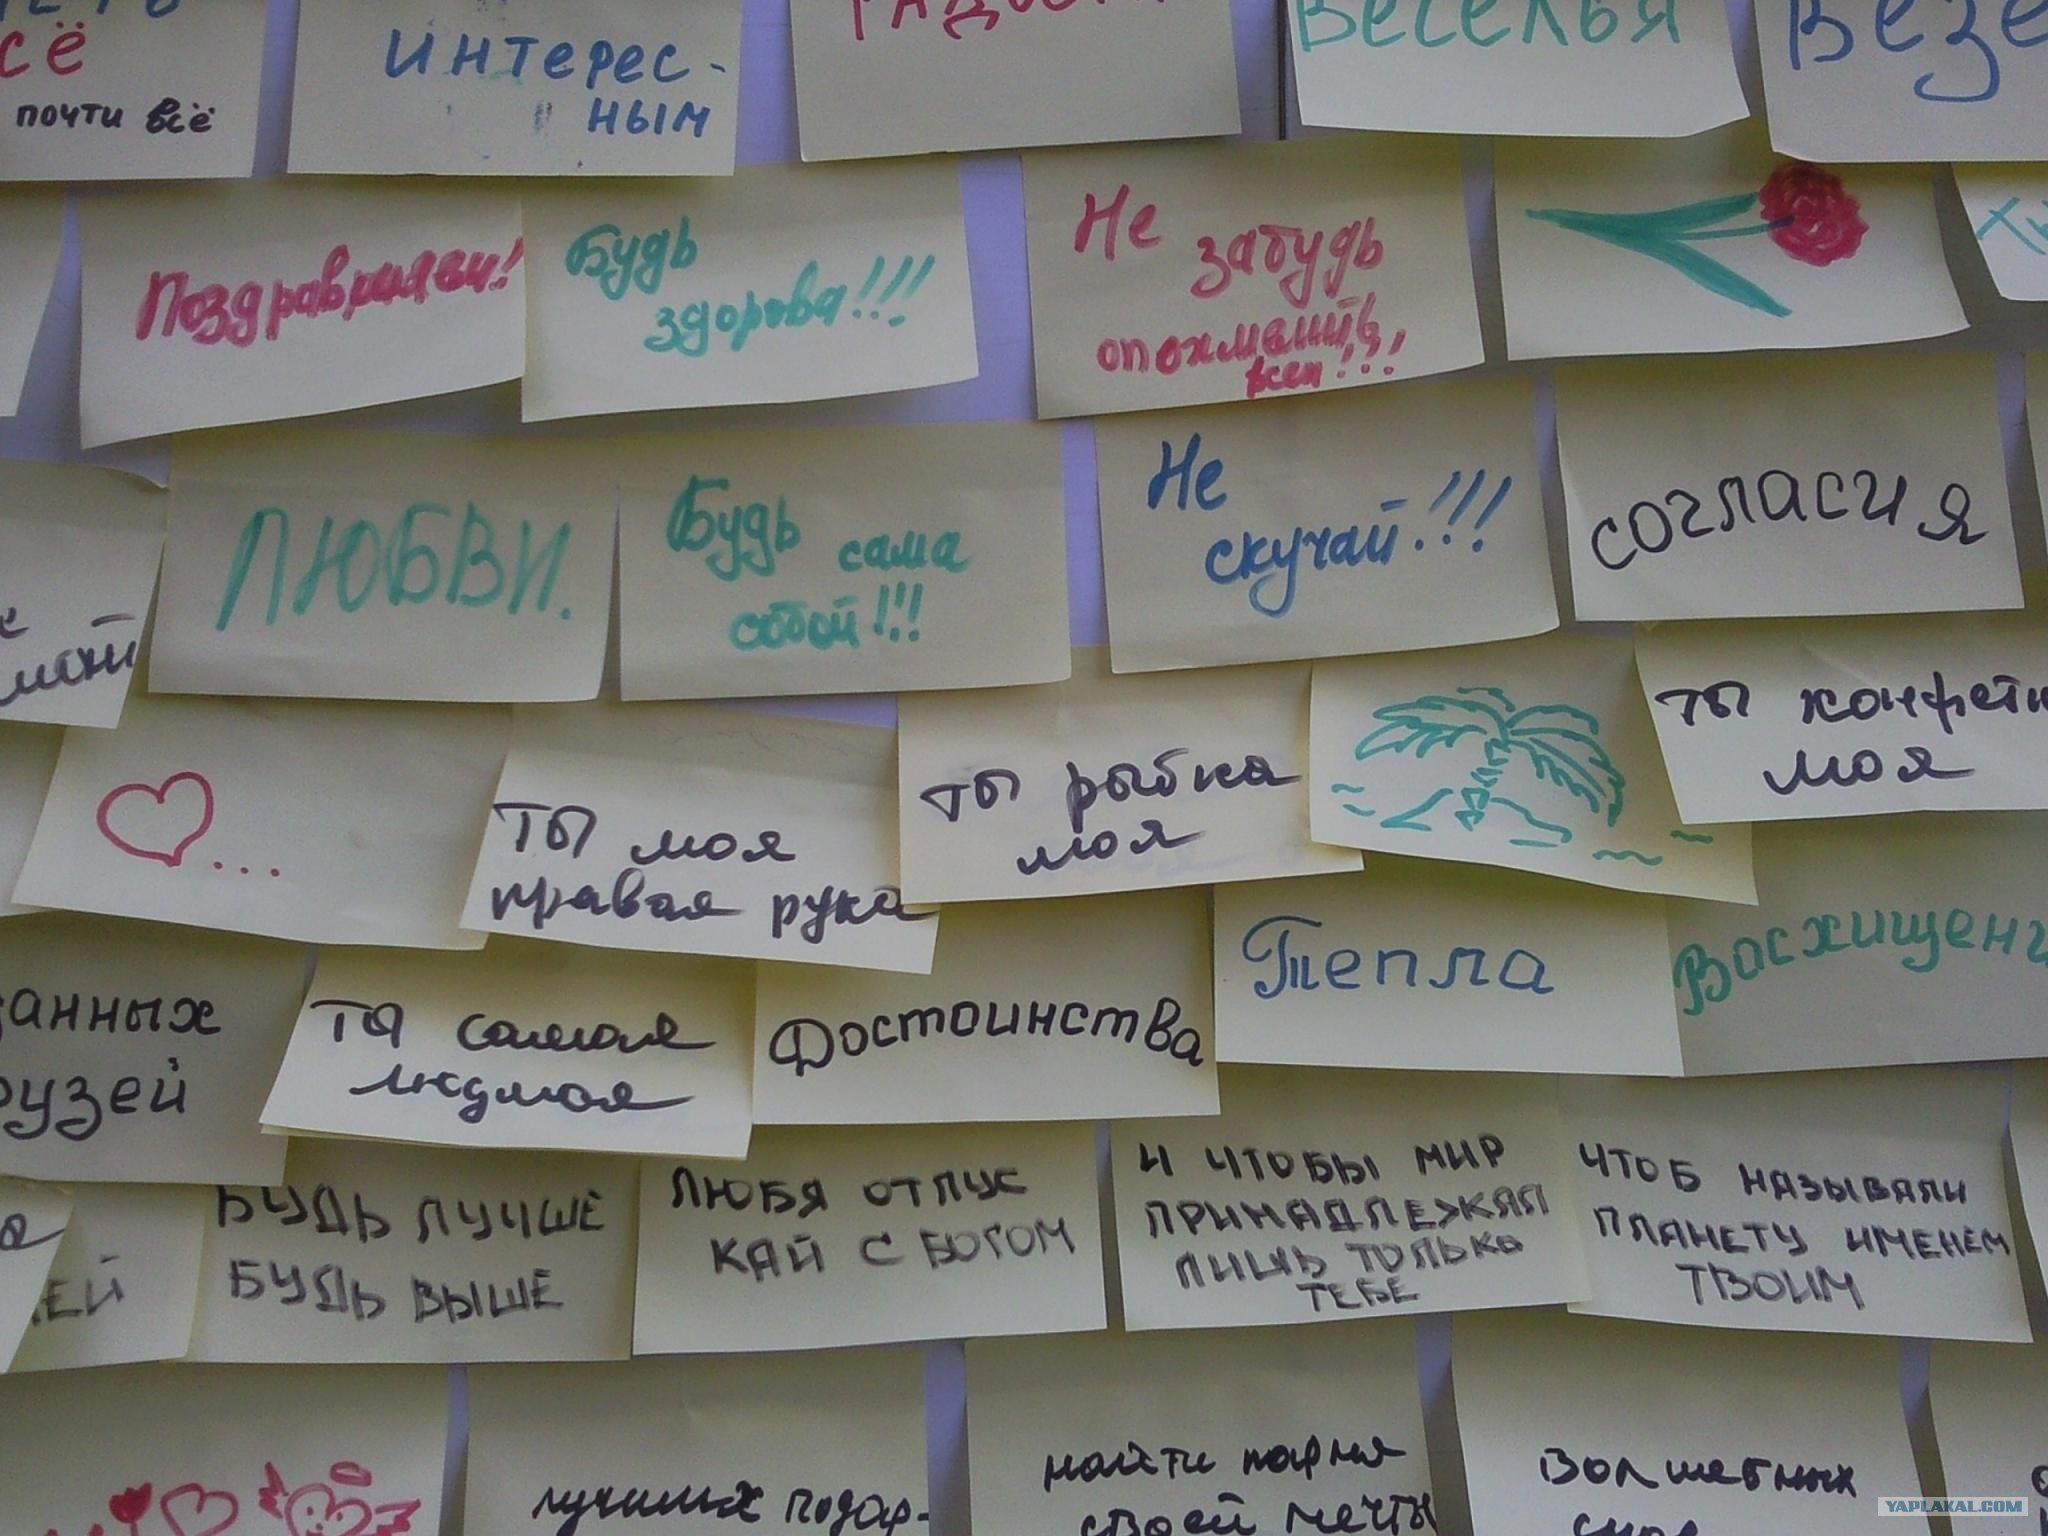 сё
почти всё
Интерес-
ным
Веселья
Везе
Поздравляем!
Будь
здорова!!!
Не
забудь
опохмелить
всех!!!
ЛЮБВИ.
Будь сама
собой!!!
Не
скучай!!!
согласия
ты моя
правая рука
ты рыбка
моя
ты конфетк
моя
данных
рузей
ты самая
людмая
Достоинства
Тепла
Восхищени
БУДЬ ЛУЧШЕ
БУДЬ ВЫШЕ
ЛЮБЯ ОТПУС
КАЙ С БОГОМ
И ЧТОБЫ МИР
ПРИНАДЛЕЖАЛ
ЛИШЬ ТОЛЬКО
ТЕБЕ
ЧТОБ НАЗЫВАЛИ
ПЛАНЕТУ ИМЕНЕМ
ТВОИМ
ЕЙ
лучших подар-
найти парня
своей мечты
Волшебных
снов
YAPLAKAL.COM